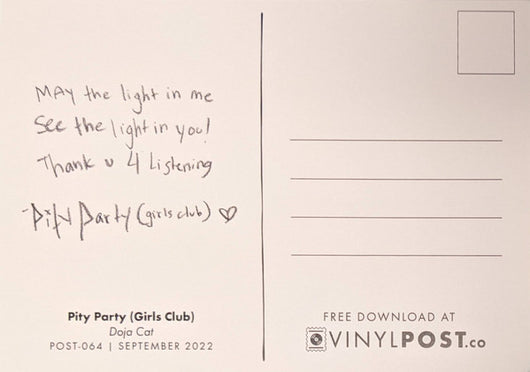 MAY the light in me
See the light in you!
Thank u 4 Listening
Pity Party (girls club) ♡
Pity Party (Girls Club)
Doja Cat
POST-064 | SEPTEMBER 2022
FREE DOWNLOAD AT
VINYLPOST.co